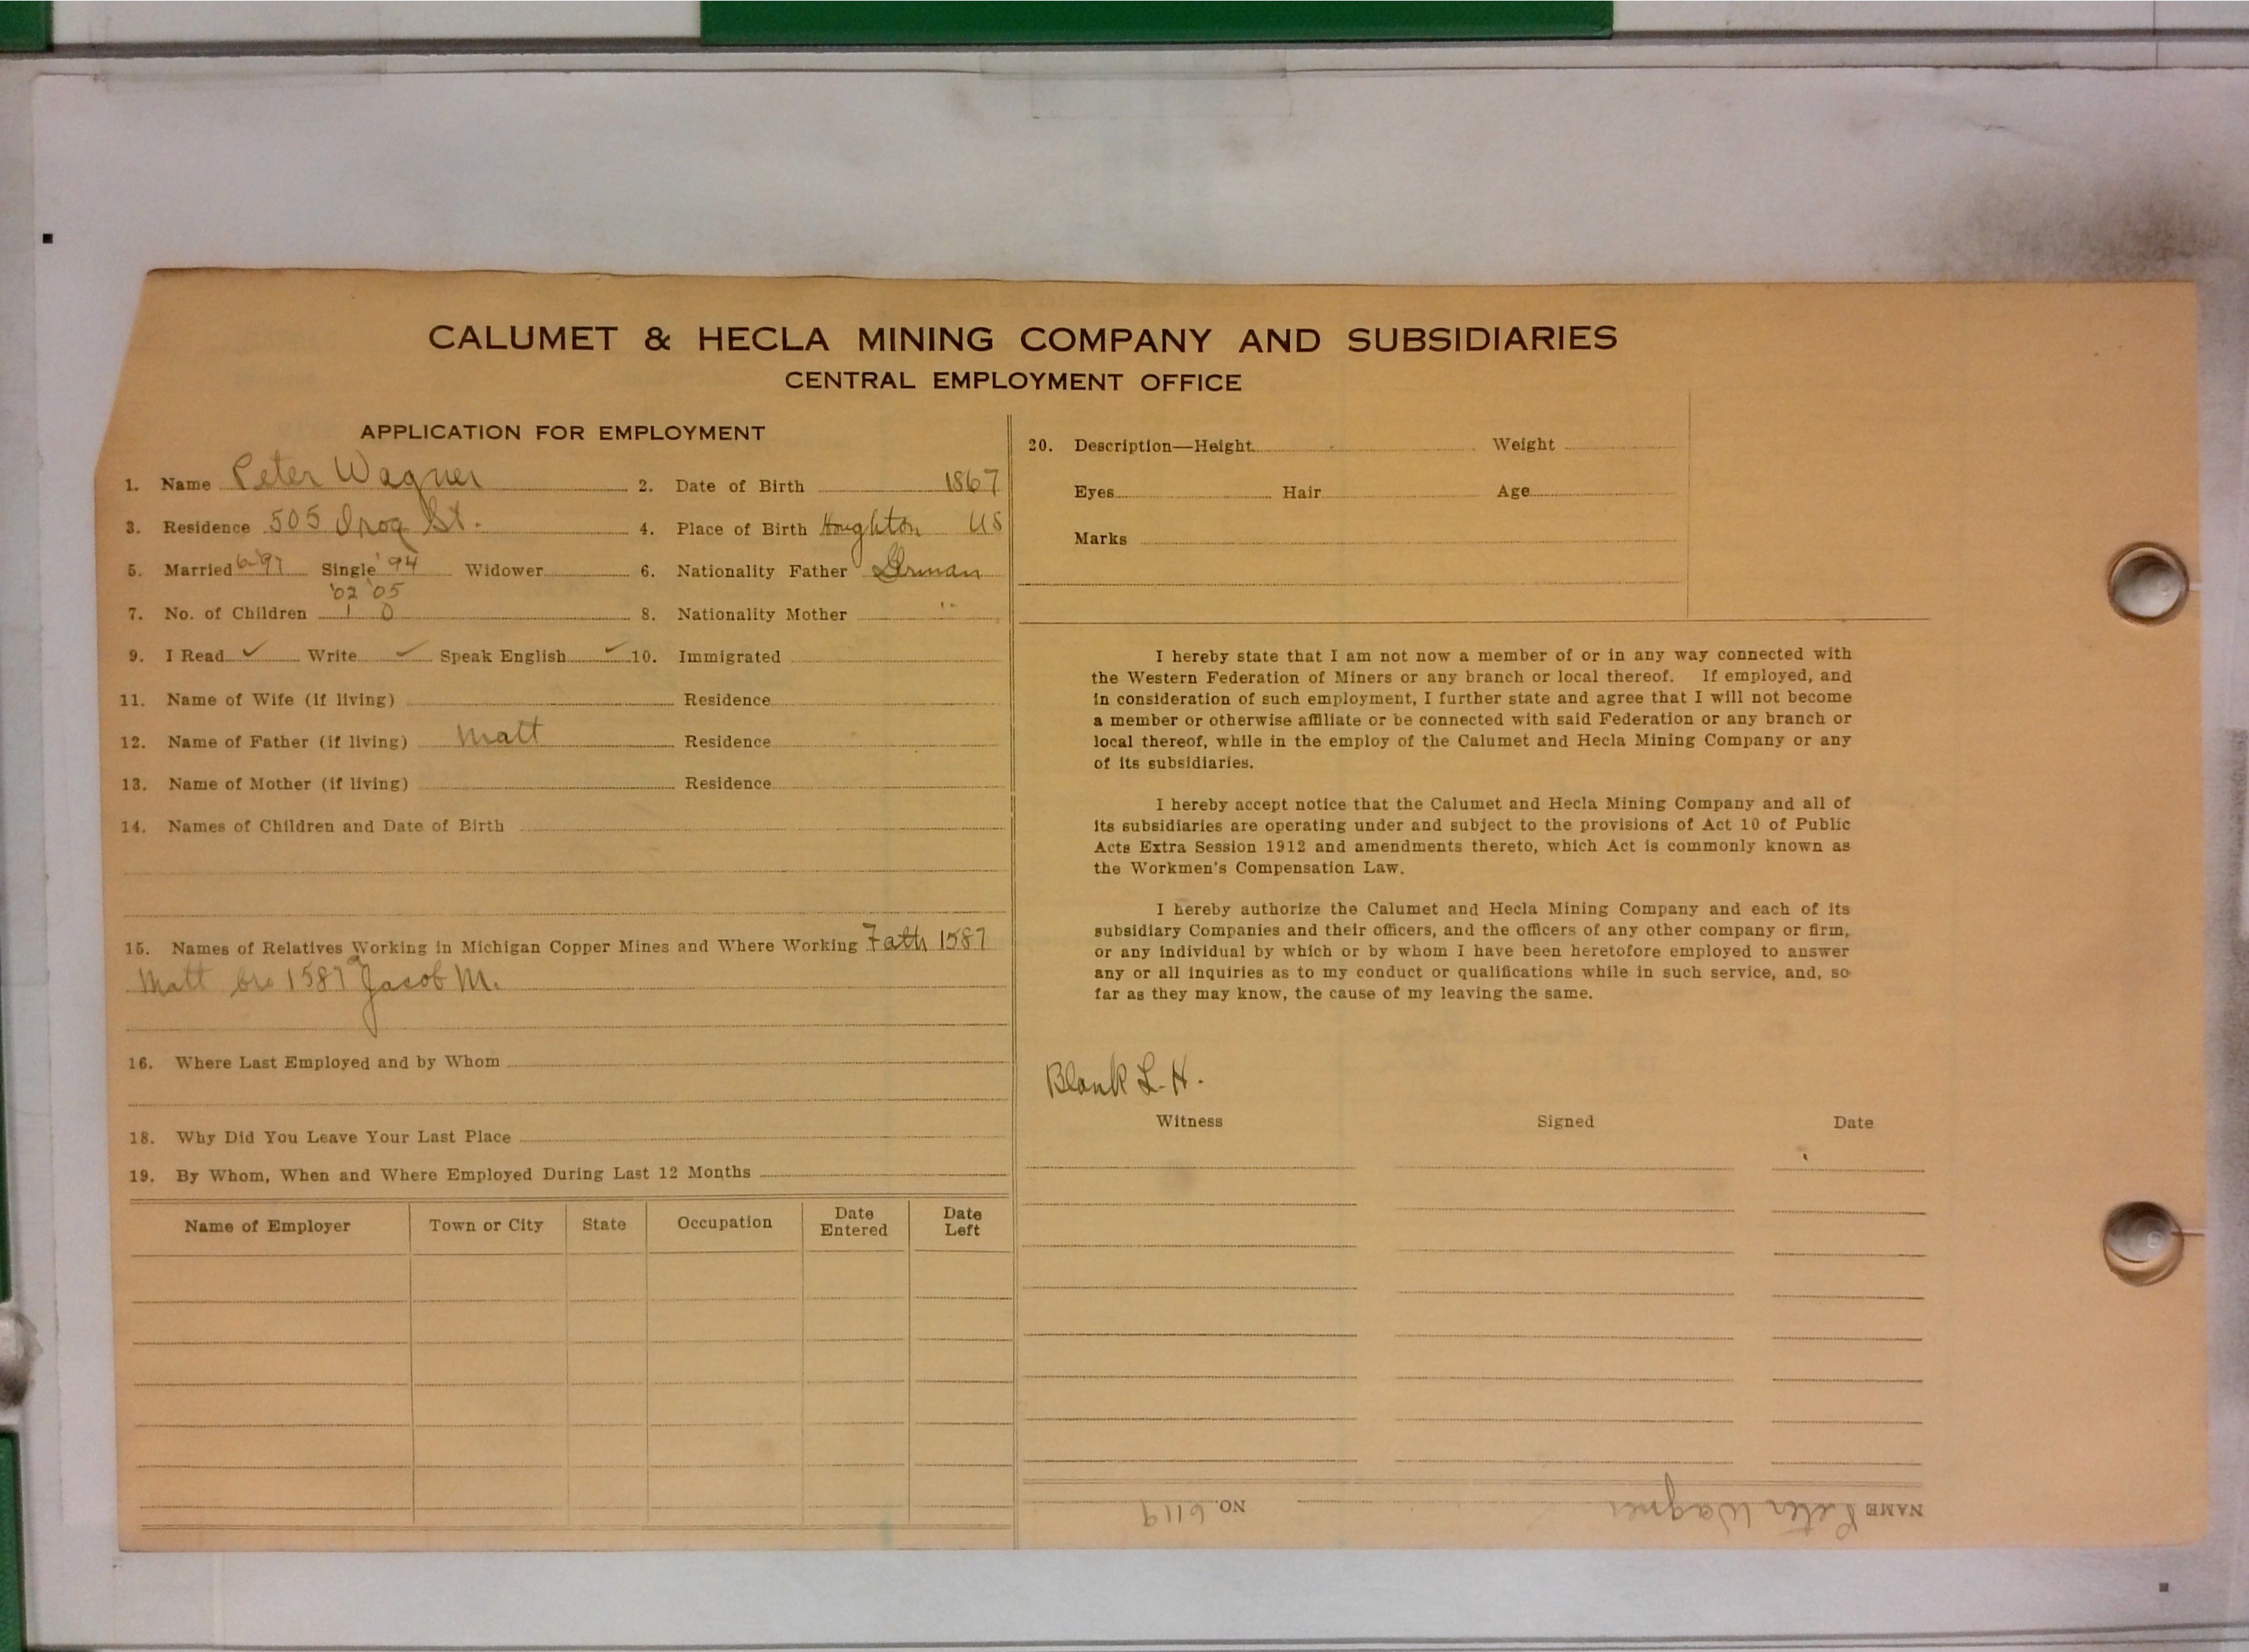 CALUMET & HECLA MINING COMPANY AND SUBSIDIARIES
CENTRAL EMPLOYMENT OFFICE
APPLICATION FOR EMPLOYMENT
1. Name Peter Wagner 2. Date of Birth 1867
3. Residence 505 Iroq St. 4. Place of Birth Houghton US
5. Married 6-'97 Single '94 Widower 6. Nationality Father German
'02 '05
7. No. of Children 1 0 8. Nationality Mother "
9. I Read ✓ Write ✓ Speak English ✓ 10. Immigrated
11. Name of Wife (if living) Residence
12. Name of Father (if living) Matt Residence
13. Name of Mother (if living) Residence
14. Names of Children and Date of Birth
15. Names of Relatives Working in Michigan Copper Mines and Where Working Fath 1587
Matt bro 1587 Jacob M.
16. Where Last Employed and by Whom
18. Why Did You Leave Your Last Place
19. By Whom, When and Where Employed During Last 12 Months
Name of Employer Town or City State Occupation Date Entered Date Left
20. Description—Height Weight
Eyes Hair Age
Marks
I hereby state that I am not now a member of or in any way connected with
the Western Federation of Miners or any branch or local thereof. If employed, and
in consideration of such employment, I further state and agree that I will not become
a member or otherwise affiliate or be connected with said Federation or any branch or
local thereof, while in the employ of the Calumet and Hecla Mining Company or any
of its subsidiaries.
I hereby accept notice that the Calumet and Hecla Mining Company and all of
its subsidiaries are operating under and subject to the provisions of Act 10 of Public
Acts Extra Session 1912 and amendments thereto, which Act is commonly known as
the Workmen's Compensation Law.
I hereby authorize the Calumet and Hecla Mining Company and each of its
subsidiary Companies and their officers, and the officers of any other company or firm,
or any individual by which or by whom I have been heretofore employed to answer
any or all inquiries as to my conduct or qualifications while in such service, and, so
far as they may know, the cause of my leaving the same.
Blank L. H.
Witness Signed Date
NAME Peter Wagner NO. 6119